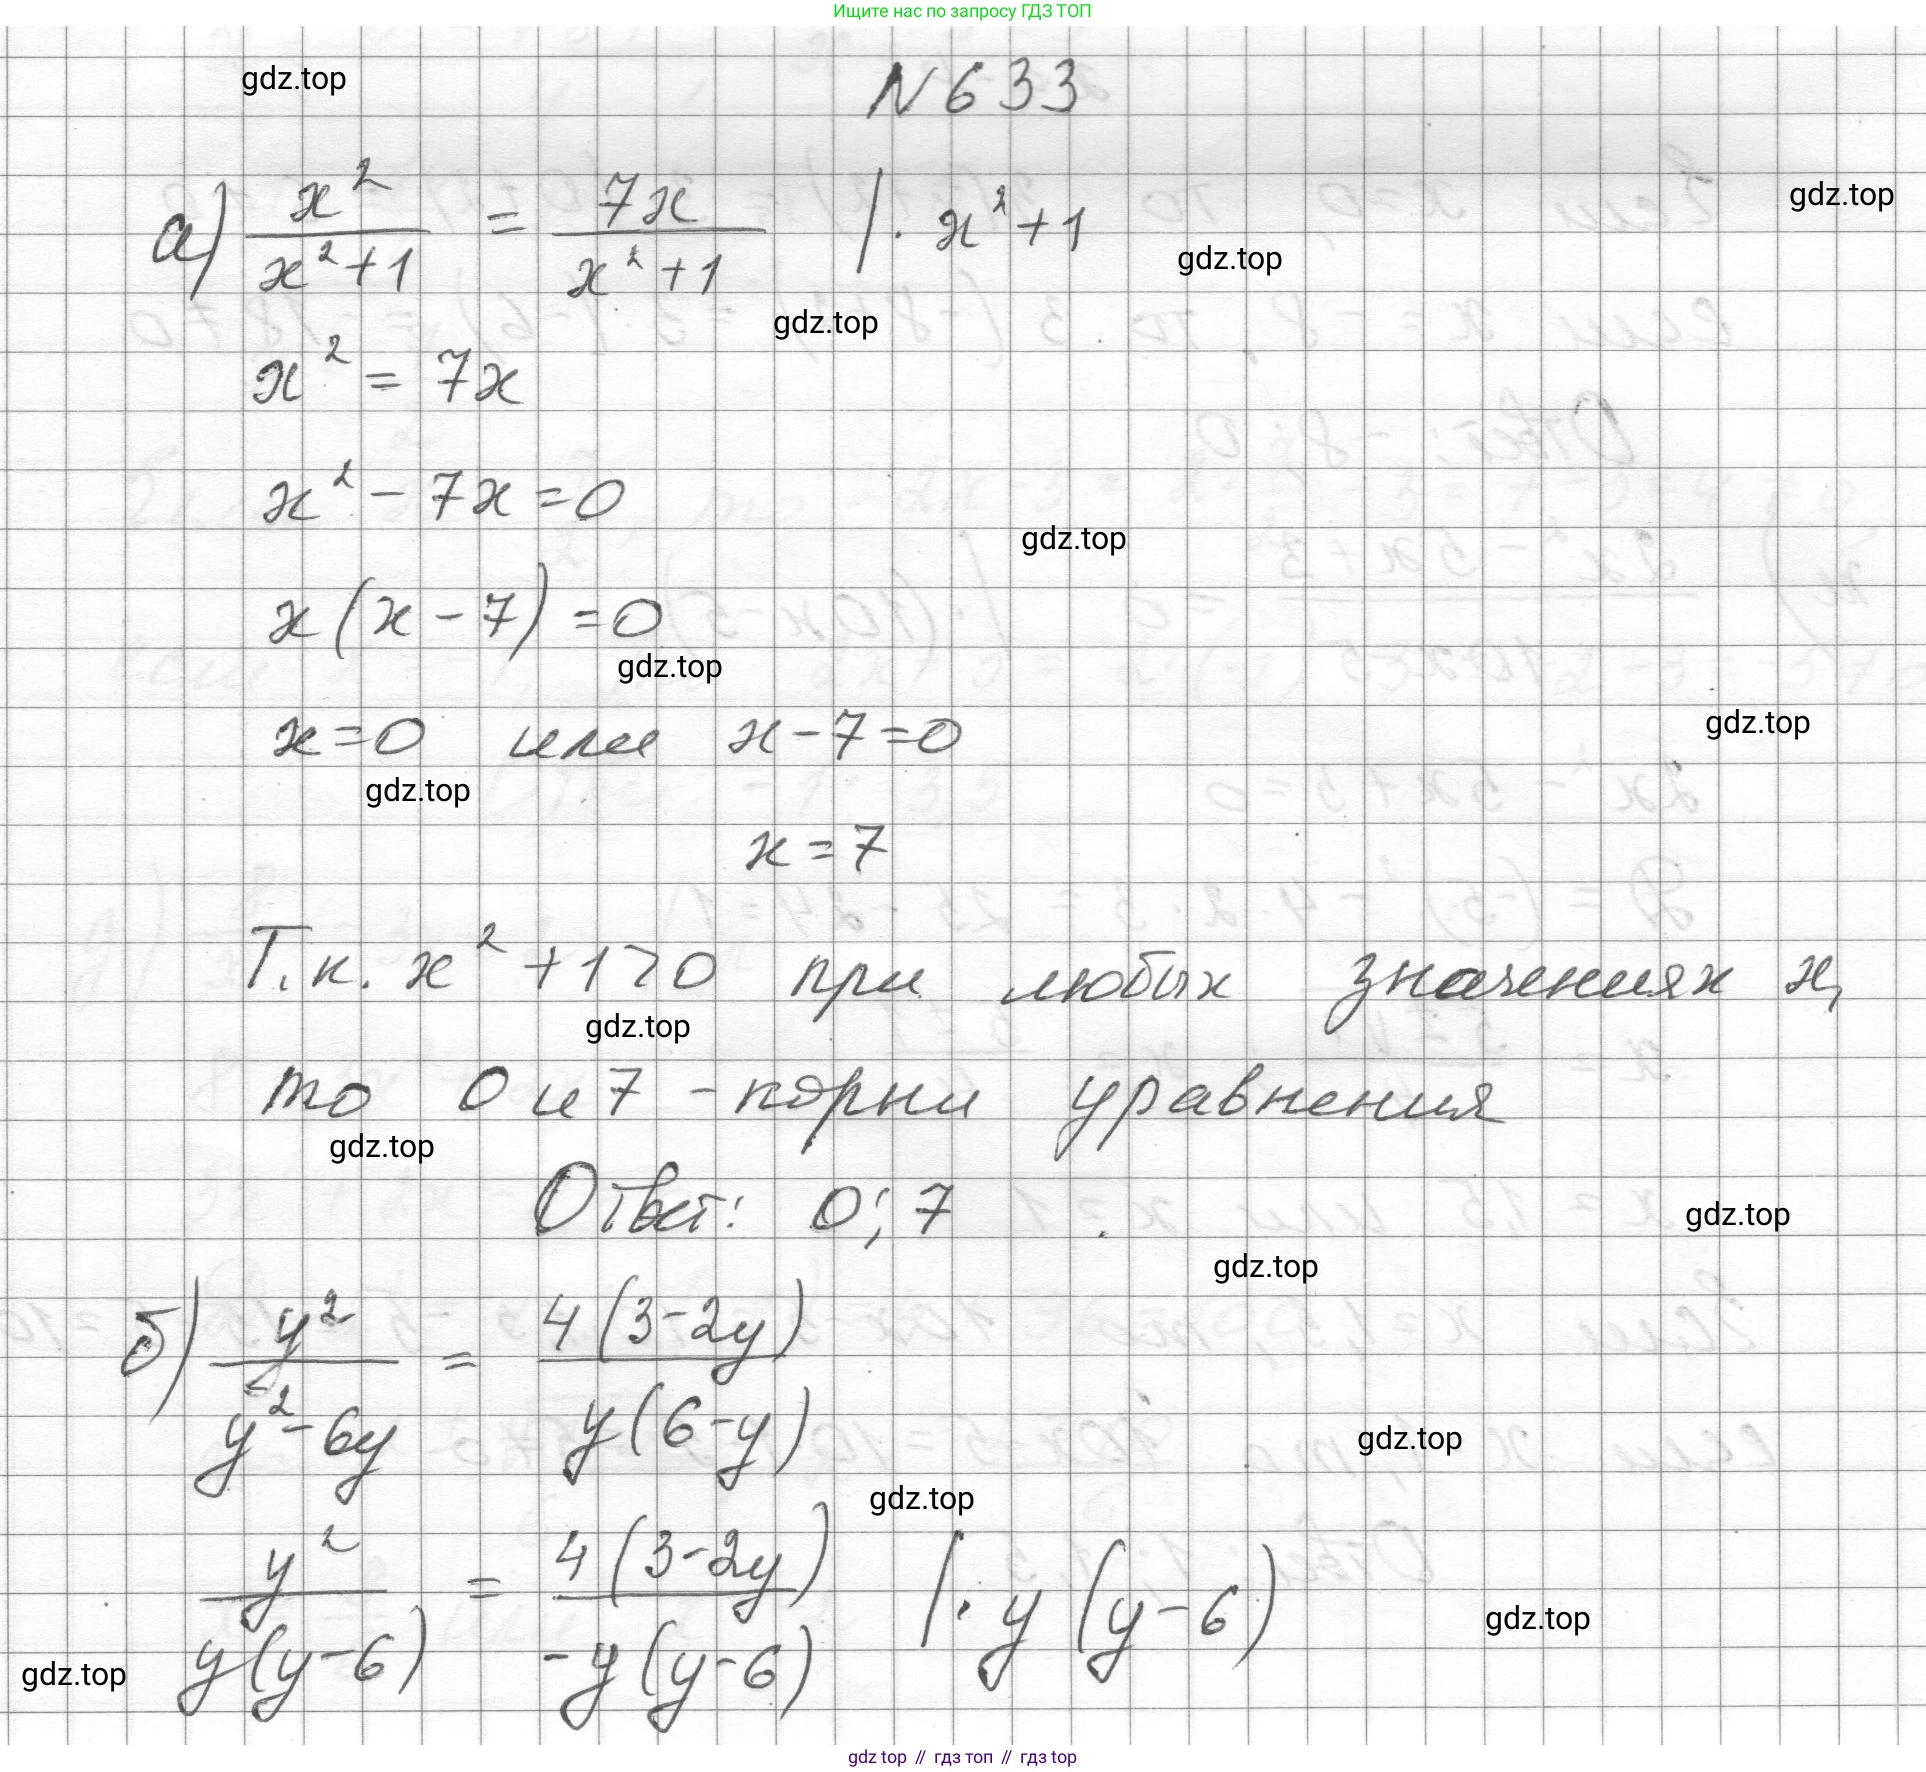 Ищите нас по запросу ГДЗ ТОП
gdz.top
N 633
gdz.top
а) x²/(x²+1) = 7x/(x²+1) | · x²+1
gdz.top
gdz.top
x² = 7x
x² - 7x = 0
gdz.top
x(x-7) = 0
gdz.top
x = 0 или x - 7 = 0
gdz.top
gdz.top
x = 7
Т.к. x² + 1 > 0 при любых значениях x,
gdz.top
то 0 и 7 - корни уравнения
gdz.top
Ответ: 0; 7
gdz.top
gdz.top
б) y²/(y²-6y) = 4(3-2y)/(y(6-y))
gdz.top
gdz.top
y²/(y(y-6)) = 4(3-2y)/(-y(y-6)) | · y(y-6)
gdz.top
gdz.top
gdz top // гдз топ // гдз top